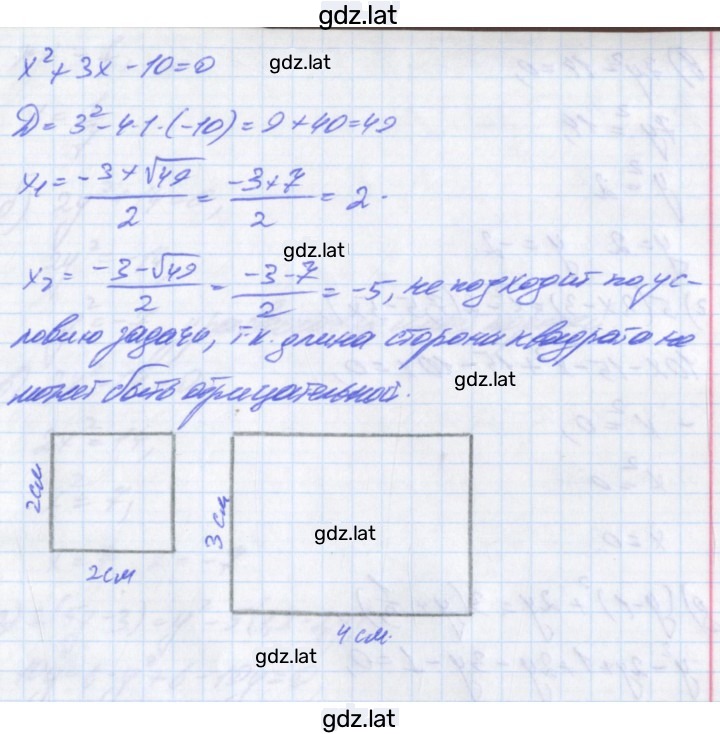 gdz.lat
x² + 3x - 10 = 0
gdz.lat
D = 3² - 4·1·(-10) = 9 + 40 = 49
x₁ = (-3 + √49)/2 = (-3 + 7)/2 = 2.
gdz.lat
x₂ = (-3 - √49)/2 = (-3 - 7)/2 = -5, не подходит по ус-
ловию задачи, т.к. длина стороны квадрата не
может быть отрицательной.
gdz.lat
2 см
2 см
3 см
gdz.lat
4 см.
gdz.lat
gdz.lat